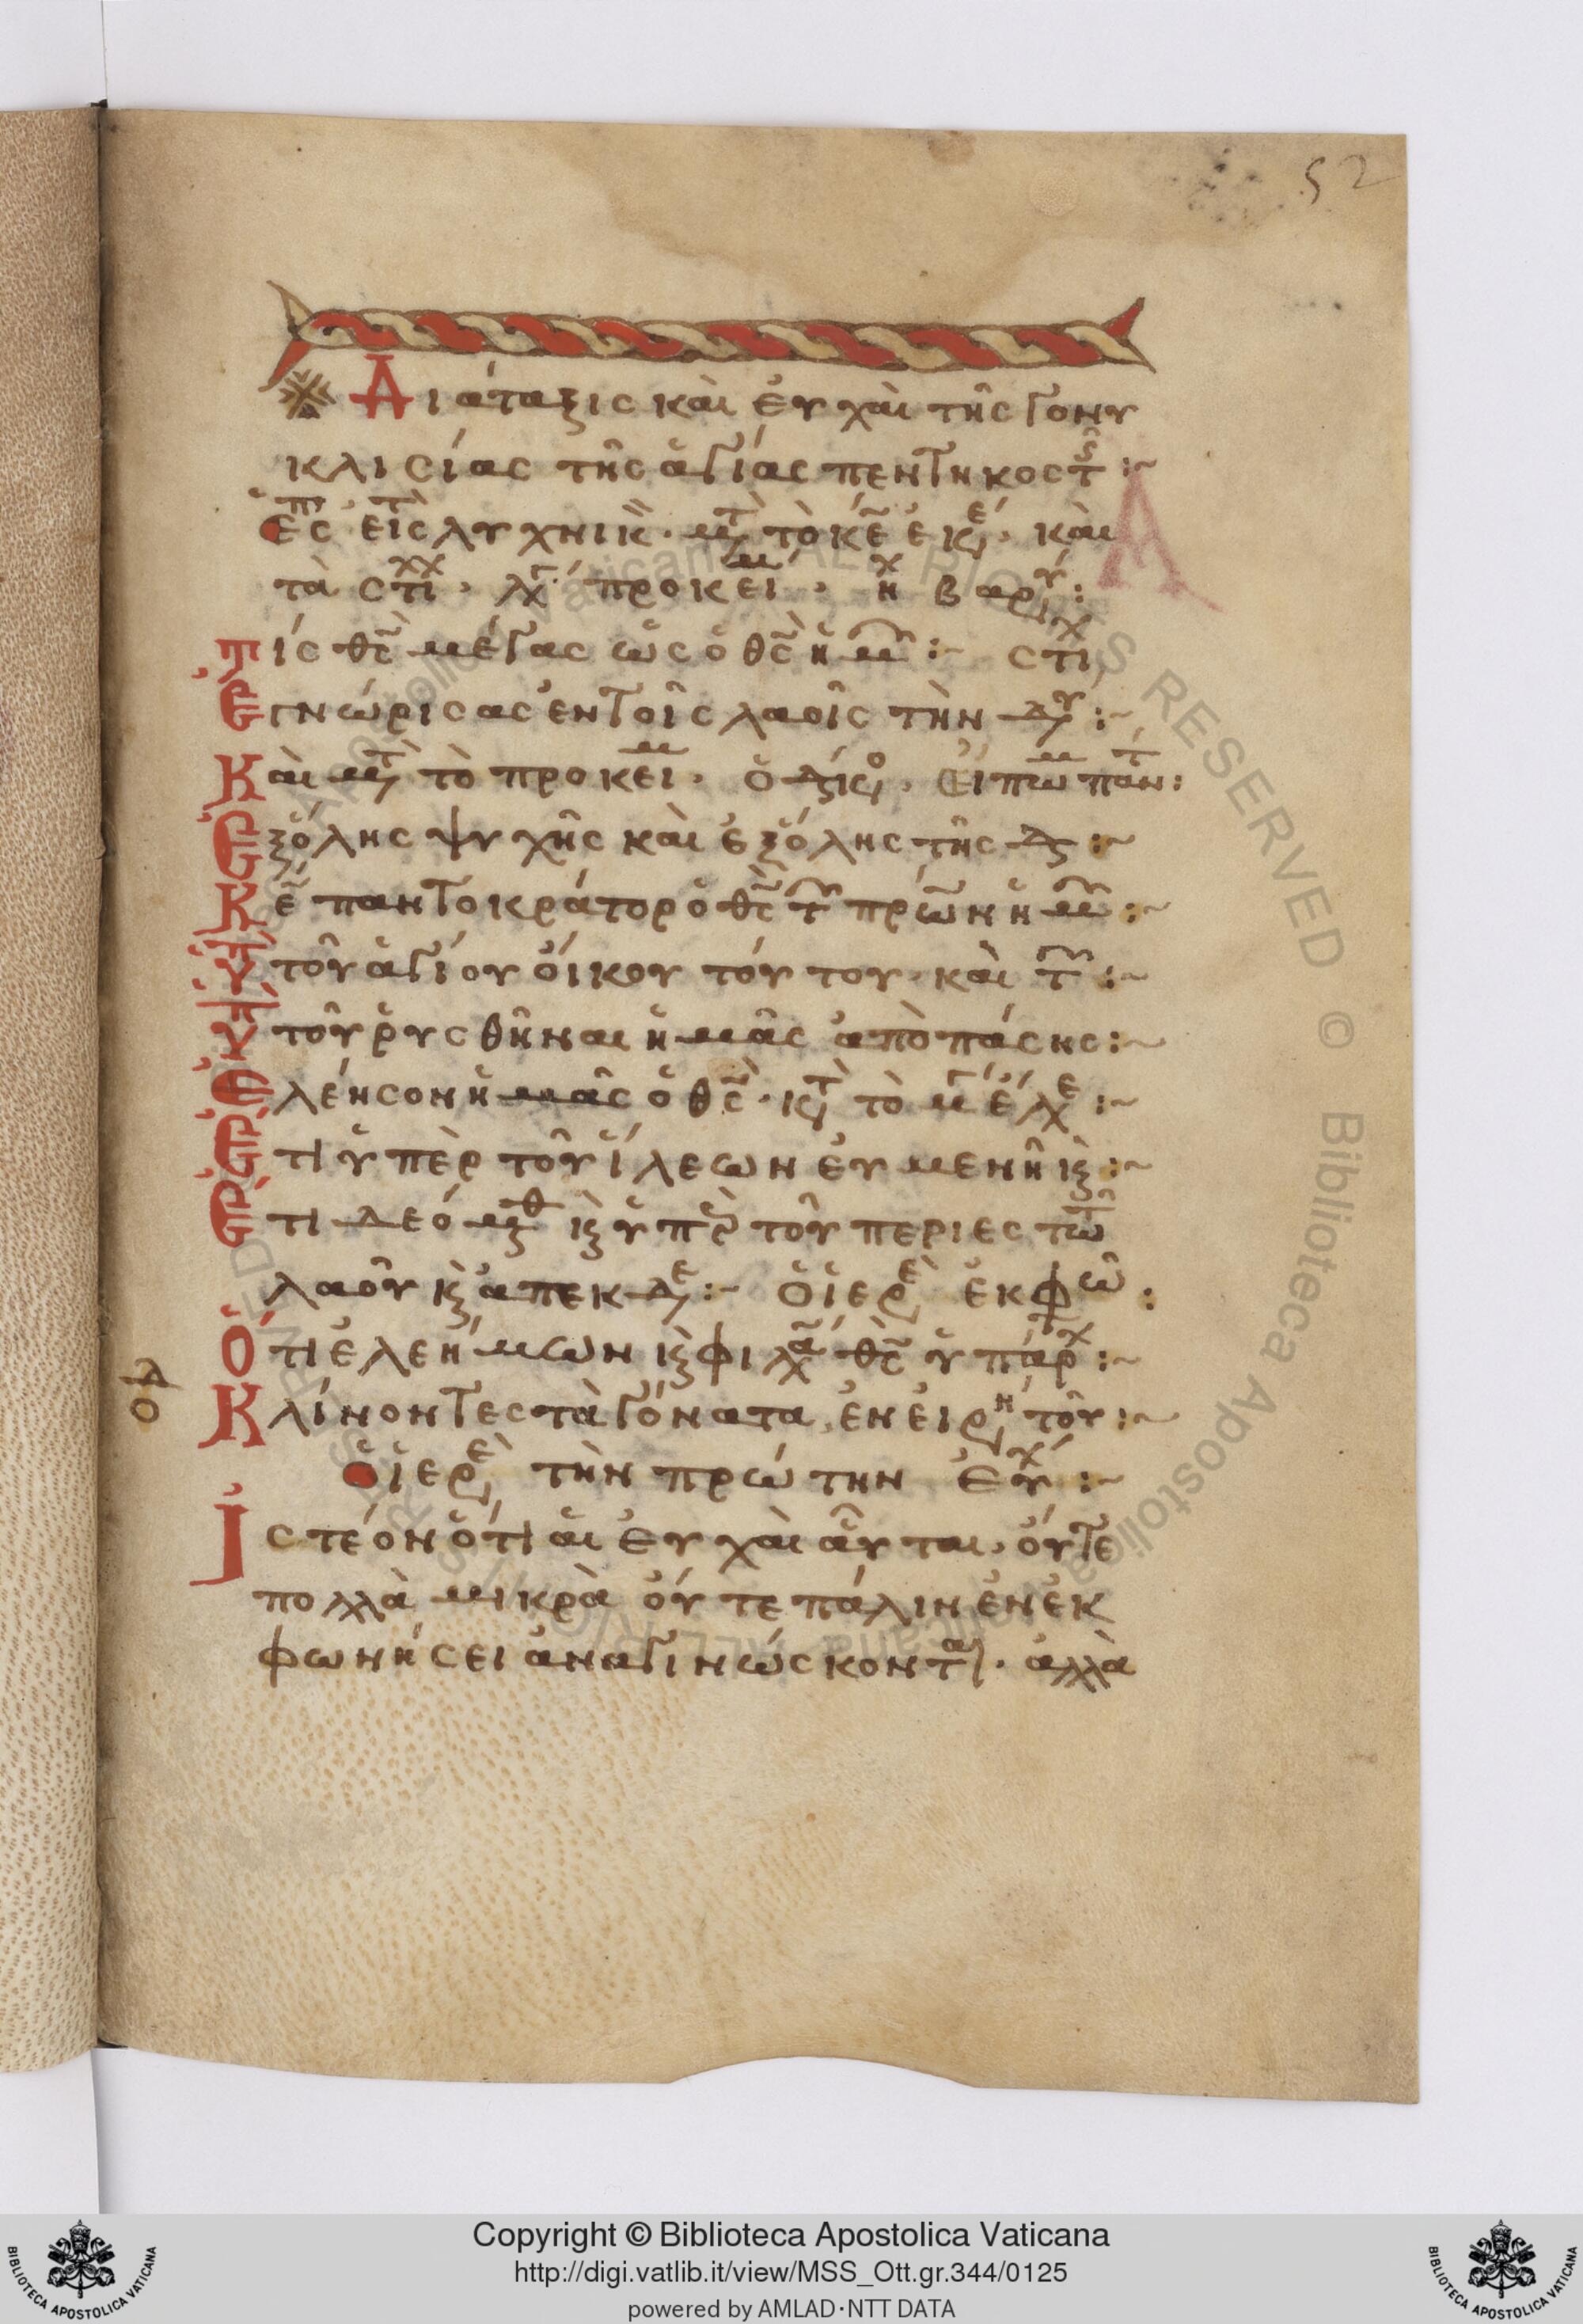 52
Διάταξις καὶ ἐυχὰι τῆς γονυ
κλισίας τῆς ἁγίας πεντηκοστ :~
ἑσπ εἰς τ λυχνικ · μετ τὸ κε ἐκέ · καὶ
τὰ στιχχ · λγ προκείμ · ἦχ βαρύ :
Τίς θς μέγας ὡς ὁ θς ἡμ :~ στιχ
Ἐγνώρισας ἐν τοῖς λαοῖς τὴν δυ :~
Καὶ μετ τὸ προκειμ · ὁ διακο · Εἴπωμ πάντ :
Ἐξ ὅλης ψυχῆς καὶ ἐξ ὅλης τῆς δ :~
Κε παντοκράτορ ὁ θς τ πρων ἡμ :~
Ὑπ τοῦ ἁγίου οἴκου τούτου · καὶ τ :~
Ὑπ τοῦ ῥυσθῆναι ἡμᾶς ἀπὸ πάσης :~
Ἐλέησον ἡμᾶς ὁ θς · κτ τὸ μέγ ἔλε :~
Ἔτι ὑπὲρ τοῦ ἵλεων ἐυμενῆ κ :~
Ἔτι δεόμεθ κ ὑπὲρ τοῦ περιεστῶτ
λαοῦ κ ἀπεκδε :~ Ὁ ἱερὲ ἐκφω :
Ὅτι ἐλεήμων κ φιλα θς ὑπάρχ :~
Κλίνοντες τὰ γόνατα ἐν εἰρη τοῦ :~
Ὁ ἱερὲ τὴν πρώτην Ευχ :~
Ἰστέον ὅτι ἁι ἐυχὰι ἇυται · ὄυτε
πολλὰ μικρὰ ὄυτε πάλιν ἐν ἐκ
φωνήσει ἀναγινώσκονται · ἀλλὰ
Copyright © Biblioteca Apostolica Vaticana
http://digi.vatlib.it/view/MSS_Ott.gr.344/0125
powered by AMLAD·NTT DATA
BIBLIOTECA APOSTOLICA VATICANA
BIBLIOTECA APOSTOLICA VATICANA